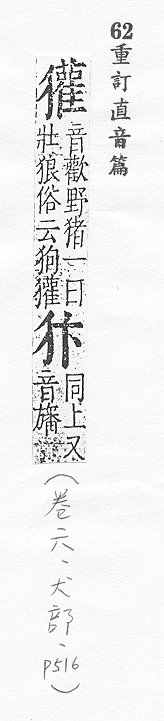 62重訂直音篇
獾音歡野猪一曰
壯狼俗云狗獾犿同上又
音旛
(卷六、犬部、p516)